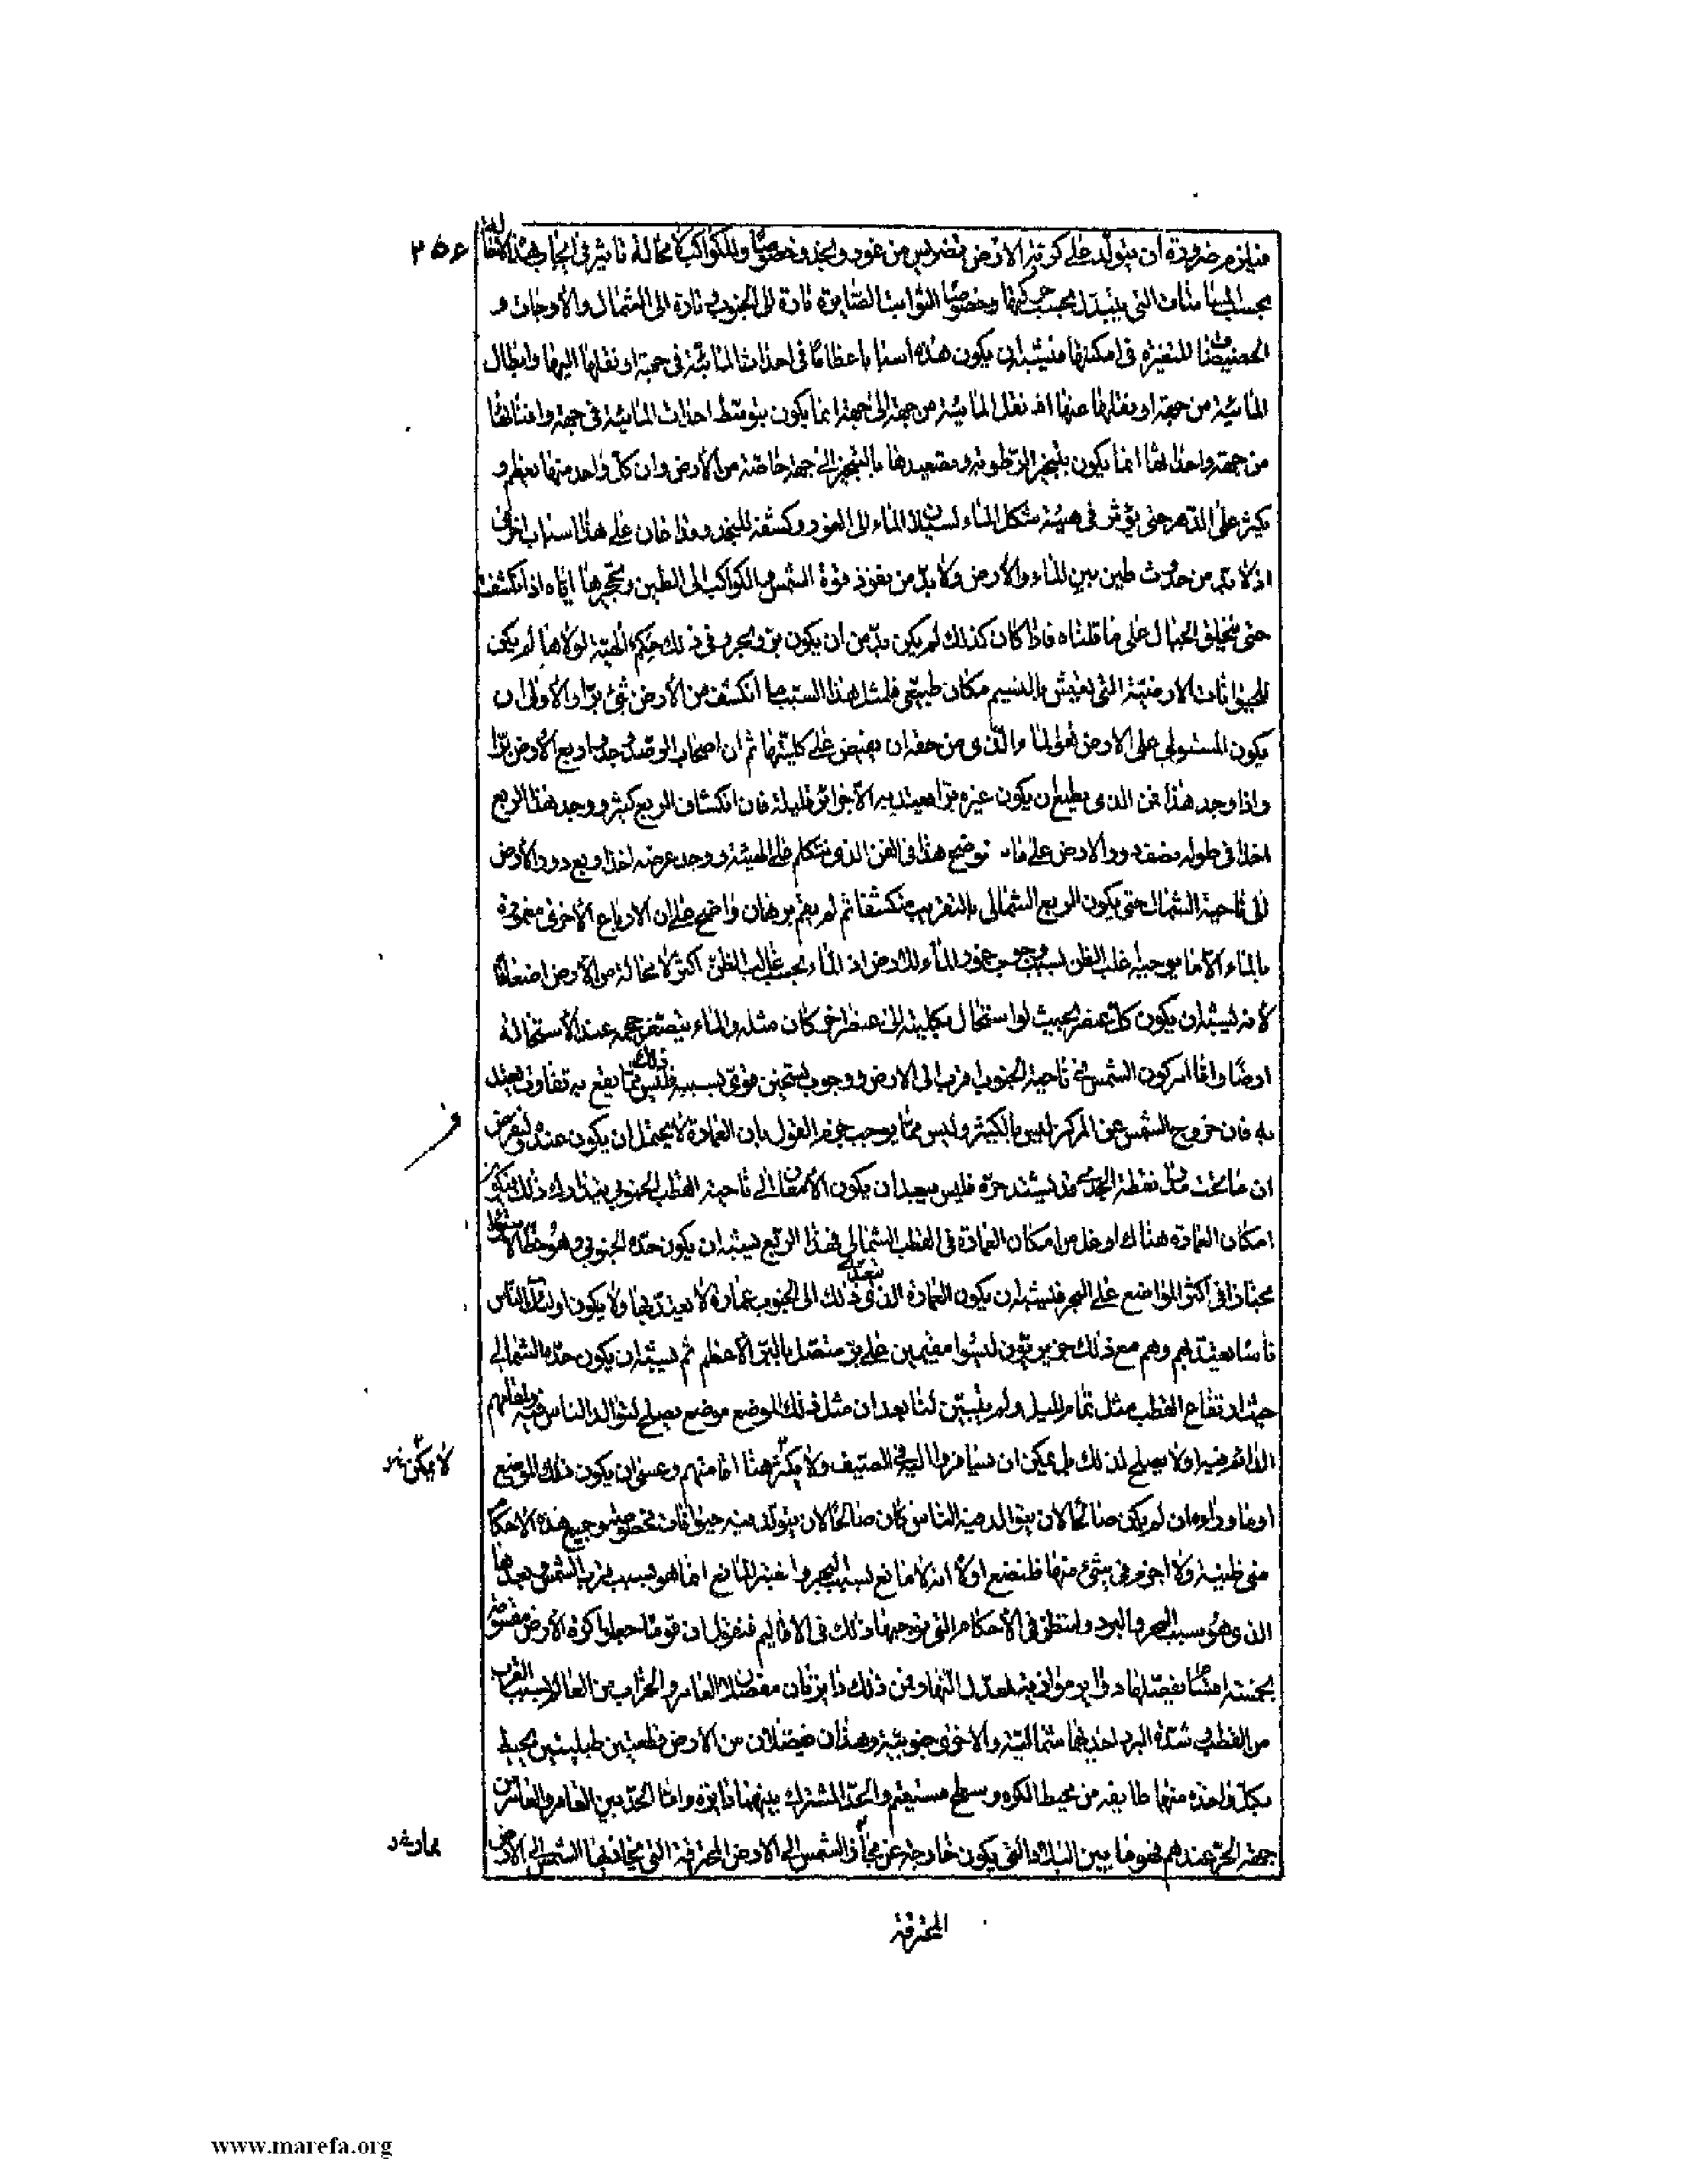 فيلزم ضرورة ان يتولد على كرية الارض تضريس من غور ونجد وخصوصا وللكواكب لا محالة تاثير في ايجاب هذا
بحسب المسامتات التي يتبدل بحسب حركتها وخصوصا الثوابت الصايرة تارة الى الجنوب وتارة الى الشمال والأوجات و
الحضيضات المتغيرة في امكنتها فيشبه ان يكون هذه اسبابا عظاما في احداث المائية في جهة او نقلها اليها وابطال
المائية من جهة او نقلها عنها اذ نقل المائية من جهة الى جهة انما يكون بتوسط احداث المائية في جهة وافنائها
من جهة واحداثها انما يكون بتبخير الرطوبة وتصعيدها بالتبخير الى جهة خاصة من الأرض وان كل واحد منها يعظم و
يكثر على الدهر حتى يؤثر في هيئة شكل الماء لسيلان الماء الى الغور وكشفه للنجد وقد اعان على هذا اسباب اخرى
اذ لا بد من حدوث طين بين الماء والأرض ولا بد من نفوذ قوة الشمس والكواكب الى الطين وتحجيرها اياه اذا انكشفت
حتى يتخلق الجبال على ما قلناه فاذا كان كذلك لم يكن بد من ان يكون بر وبحر وفي ذلك حكم الهية لولاها لم يكن
للحيوانات الارضية التي تعيش بالنسيم مكان طبيعي فلمثل هذا السبب ما انكشف من الأرض شئ برا والأولى ان
يكون المستولي على الارض هو الماء الذي من حقه ان يفيض على كليتها ثم ان اصحاب الرصد وجدوا ربع الأرض برا
واذا وجد هذا فمن الذي يطيع ان يكون غيره برا معتد به الا جزائر قليلة فان انكشاف الربع كثير ووجد هذا الربع
اخذا في طوله نصف دور الارض على ما نوضح هذا في الفن الذي نتكلم في الهيئة ووجد عرضه اخذا ربع دور الأرض
الى ناحية الشمال حتى يكون الربع الشمالي بالتقريب منكشفا ثم لم يقم برهان واضح على ان الارباع الأخرى مغمورة
بالماء الا ما يوجبه غلب الظن بسبب وجوب غمور الماء للارض اذ الماء بحسب غالب الظن اكثر لا محالة من الأرض اضعافا
لانه يشبه ان يكون كل عنصر بحيث لو استحال بكليته الى عنصر اخر كان مثله والماء يتصغر حجمه عند الاستحالة
ارضا واما امر كون الشمس في ناحية الجنوب اقرب الى الارض ووجوب تسخين قوي بسببه فليس ذلك مما يقع به تفاوت يعتد
به فان خروج الشمس عن المركز ليس بالكثير وليس مما يوجب جزم القول بان العمارة لا يحتمل ان يكون عنده وليفرض
ان ما تحت مدار نقطة الجدي قد يشتد حره فليس ببعيد ان يكون الامعان الى ناحية القطب الجنوبي يتدارك ذلك فيكون
امكان العمارة هناك اوغل من امكان العمارة في القطب الشمالي فهذا الربع يشبه ان يكون حده الجنوبي وهو خط الاستواء
مجتازا في اكثر المواضع على البحر فيشبه ان يكون العمارة الذي يتعدى ذلك الى الجنوب عمارة لا يعتد بها ولا يكون اولئك الناس
ناسا يعتد بهم وهم مع ذلك جزيريون ليسوا مقيمين على بر متصل بالبر الأعظم ثم يشبه ان يكون حده الشمالي
حيث ارتفاع القطب مثل تمام الميل ولم يتبين لنا بعد ان مثل ذلك الموضع موضع يصلح لتوالد الناس فيه ومقامهم
الدائم فيه او لا يصلح لذلك بل يمكن ان يسافر اليه في الصيف ولا يكثر هنا اقامتهم وعسى ان يكون ذلك الموضع
او ما وراءه ان لم يكن صالحا لان يتوالد فيه الناس كان صالحا لان يتولد فيه حيوانات مخصوصة وجميع هذه الاحكام
مني ظنية ولا اجزم في شئ منها فلنضع اولا انه لا مانع بسبب البحر وانه المانع انما هو بسبب قرب الشمس وبعدها
الذي هو سبب الحر والبرد ولننظر في الأحكام التي يوجبها ذلك في الاقاليم فنقول ان قوما جعلوا كرة الأرض مقسومة
بخمسة اقسام يفصلها دوائر موازية لمعدل النهار فمن ذلك دائرتان مفصلتا العامر والخراب من العالم بسبب القرب
من القطب شدة البرد احديهما شمالية والاخرى جنوبية وهذان يفصلان من الأرض قطعتين طبليتين يحيط
بكل واحدة منها طايفة من محيط الكرة وسطح مستقيم والحد المشترك بينهما دائرة واما الحد بين العامر والغامر من
جهة الحر عندهم فهو ما بين البلاد التي يكون خارجة عن مجاز الشمس الى الأرض المحترقة التي يحاذيها الشمس الى الارض
لا يمكن
المحترقة
www.marefa.org